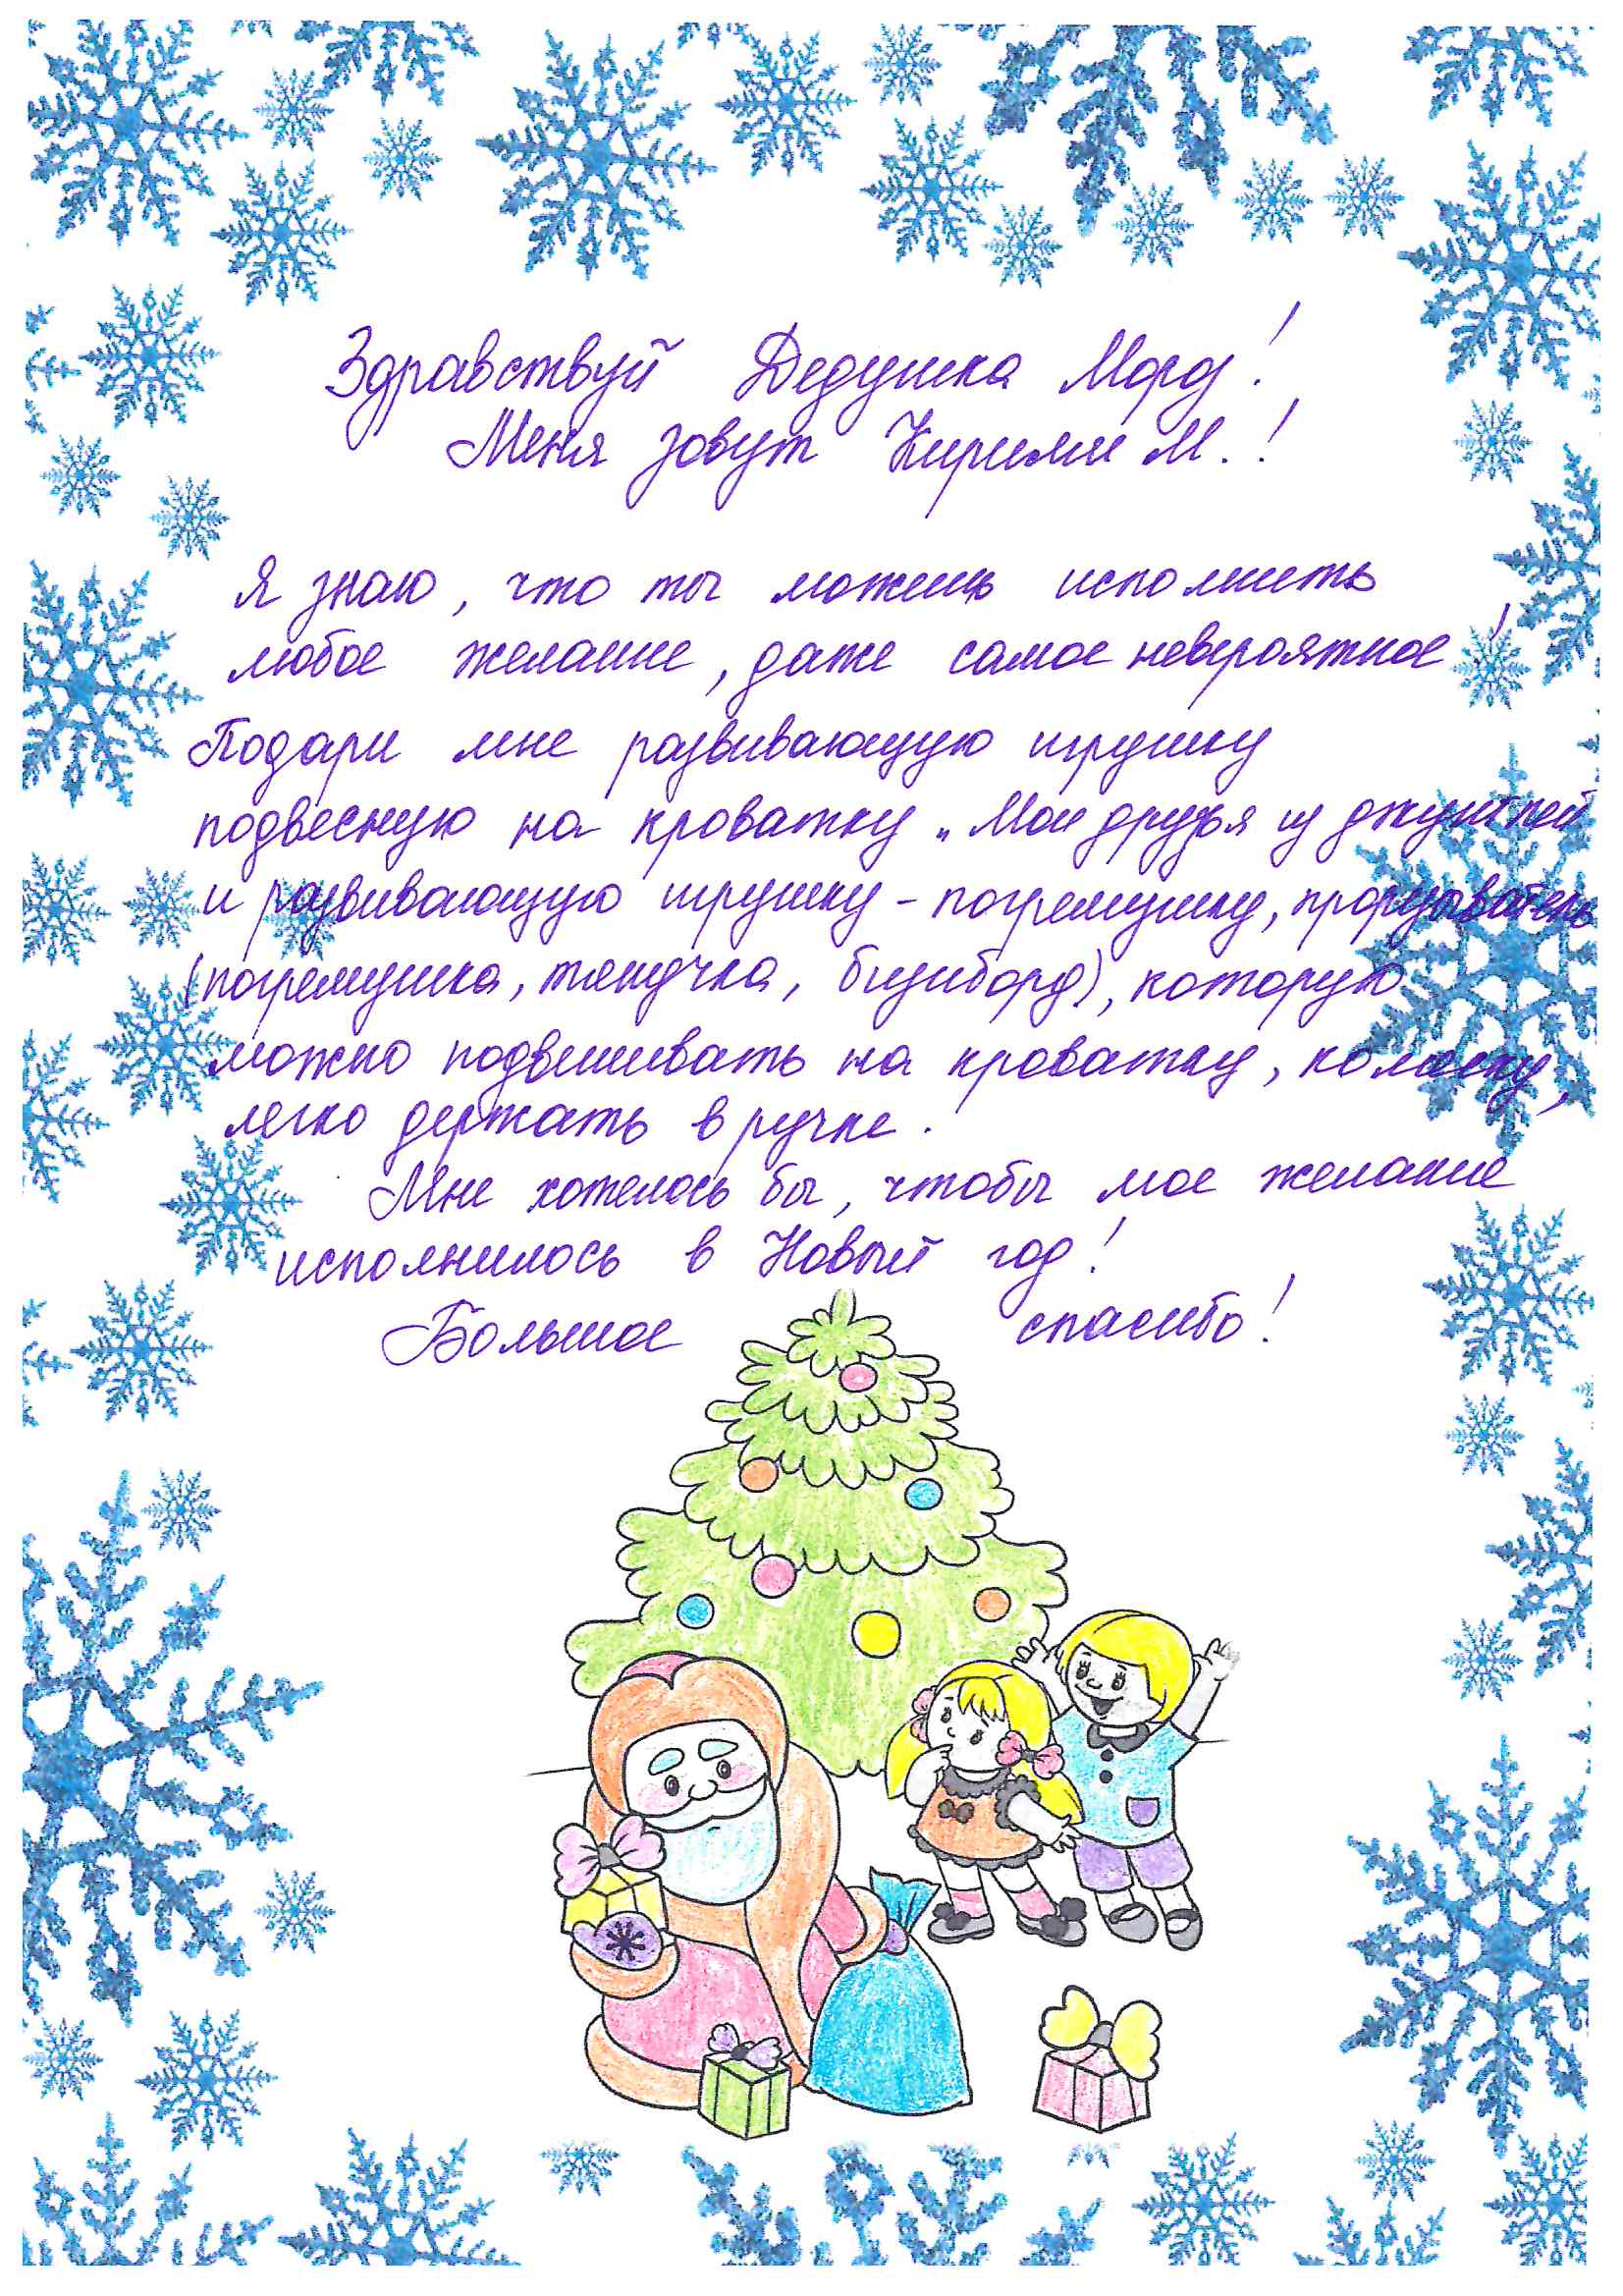 Здравствуй Дедушка Мороз!
Меня зовут Кирилл М.!
Я знаю, что ты можешь исполнить
любое желание, даже самое невероятное!
Подари мне развивающую игрушку
подвесную на кроватку „Мои друзья из джунглей
и развивающую игрушку - погремушку, прорезыватель
(погремушка, тянучка, бизиборд), которую
можно подвешивать на кроватку, коляску,
легко держать в ручке.
Мне хотелось бы, чтобы мое желание
исполнилось в Новый год!
Большое спасибо!